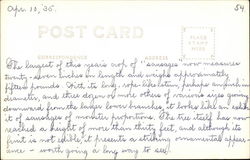 Apr. 10, '35.
54
POST CARD
CORRESPONDENCE
PLACE STAMP HERE
The largest of this year's crop of "sausages" now measures
twenty-seven inches in length and weighs approximately
fifteen pounds. With its long, rope-like stem, perhaps
diameter, and three dozen or more others of various sizes going
downward from the larger lower branches, it looks like an exhib-
it of sausages of monster proportions. The tree itself has now
reached a height of more than thirty feet, and although its
fruit is not edible, it presents a striking ornamental appear-
ance - worth going a long way to see!